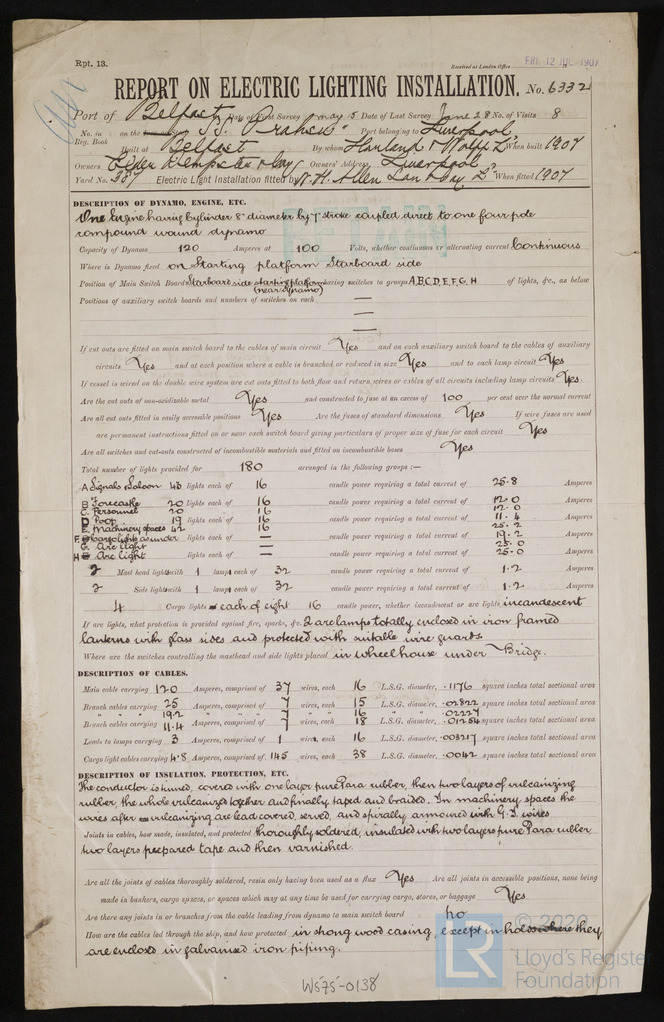 Rpt. 13.
Received at London Office FRI. 12 JUL 1907
REPORT ON ELECTRIC LIGHTING INSTALLATION. No. 6332
Port of Belfast Date of First Survey May 5 Date of Last Survey June 28 No. of Visits 8
No. in Reg. Book on the S.S. Port belonging to Liverpool
Built at Belfast By whom Harland & Wolff Ld When built 1907
Owners Elder Dempster & Coy Owners' Address Liverpool
Yard No. 387 Electric Light Installation fitted by W. H. Allen Son & Coy Ld When fitted 1907
DESCRIPTION OF DYNAMO, ENGINE, ETC.
One Engine having Cylinder 8" diameter by 7" stroke coupled direct to one four pole
compound wound dynamo
Capacity of Dynamo 120 Amperes at 100 Volts, whether continuous or alternating current Continuous
Where is Dynamo fixed on Starting platform Starboard side
Position of Main Switch Board Starboard side starting platform (near dynamo) having switches to groups A B C D, E, F, G, H of lights, &c., as below
Positions of auxiliary switch boards and numbers of switches on each —
—
—
If cut outs are fitted on main switch board to the cables of main circuit Yes and on each auxiliary switch board to the cables of auxiliary
circuits Yes and at each position where a cable is branched or reduced in size Yes and to each lamp circuit Yes
If vessel is wired on the double wire system are cut outs fitted to both flow and return wires or cables of all circuits including lamp circuits Yes
Are the cut outs of non-oxidizable metal Yes and constructed to fuse at an excess of 100 per cent over the normal current
Are all cut outs fitted in easily accessible positions Yes Are the fuses of standard dimensions Yes If wire fuses are used
are permanent instructions fitted on or near each switch board giving particulars of proper size of fuse for each circuit Yes
Are all switches and cut-outs constructed of incombustible materials and fitted on incombustible bases Yes
Total number of lights provided for 180 arranged in the following groups :—
A Signals & Saloon 43 lights each of 16 candle power requiring a total current of 25.8 Amperes
B Forecastle 20 lights each of 16 candle power requiring a total current of 12.0 Amperes
C Personnel 20 16 12.0
D Poop 19 lights each of 16 candle power requiring a total current of 11.4 Amperes
E Machinery spaces 42 16 25.2
F Cargo lights as under lights each of — candle power requiring a total current of 19.2 Amperes
G Arc light — 25.0
H Arc Light lights each of — candle power requiring a total current of 25.0 Amperes
2 Mast head lights with 1 lamps each of 32 candle power requiring a total current of 1.2 Amperes
2 Side lights with 1 lamps each of 32 candle power requiring a total current of 1.2 Amperes
4 Cargo lights each of eight 16 candle power, whether incandescent or arc lights incandescent
If arc lights, what protection is provided against fire, sparks, &c. 2 arc lamps totally enclosed in iron framed
lanterns with glass sides and protected with suitable wire guards
Where are the switches controlling the masthead and side lights placed in wheel house under Bridge.
DESCRIPTION OF CABLES.
Main cable carrying 120 Amperes, comprised of 37 wires, each 16 L.S.G. diameter, .1176 square inches total sectional area
Branch cables carrying 25 Amperes, comprised of 7 wires, each 15 L.S.G. diameter, .02822 square inches total sectional area
" " " 19.2 " " 7 " " 16 " " .02227
Branch cables carrying 11.4 Amperes, comprised of 7 wires, each 18 L.S.G. diameter, .01254 square inches total sectional area
Leads to lamps carrying 3 Amperes, comprised of 1 wires, each 16 L.S.G. diameter, .003217 square inches total sectional area
Cargo light cables carrying 4.8 Amperes, comprised of 145 wires, each 38 L.S.G. diameter, .0042 square inches total sectional area
DESCRIPTION OF INSULATION, PROTECTION, ETC.
The conductor is tinned, covered with one layer pure Para rubber, then two layers of vulcanizing
rubber, the whole vulcanized together and finally taped and braided. In machinery spaces the
wires after vulcanizing are lead covered, served, and spirally armoured with G. I. wires
Joints in cables, how made, insulated, and protected thoroughly soldered, insulated with two layers pure Para rubber
two layers prepared tape and then varnished.
Are all the joints of cables thoroughly soldered, resin only having been used as a flux Yes Are all joints in accessible positions, none being
made in bunkers, cargo spaces, or spaces which may at any time be used for carrying cargo, stores, or baggage Yes
Are there any joints in or branches from the cable leading from dynamo to main switch board no
How are the cables led through the ship, and how protected in strong wood casing, except in holds where they
are enclosed in galvanised iron piping.
W575-0138
© 2020
LR
Lloyd's Register
Foundation